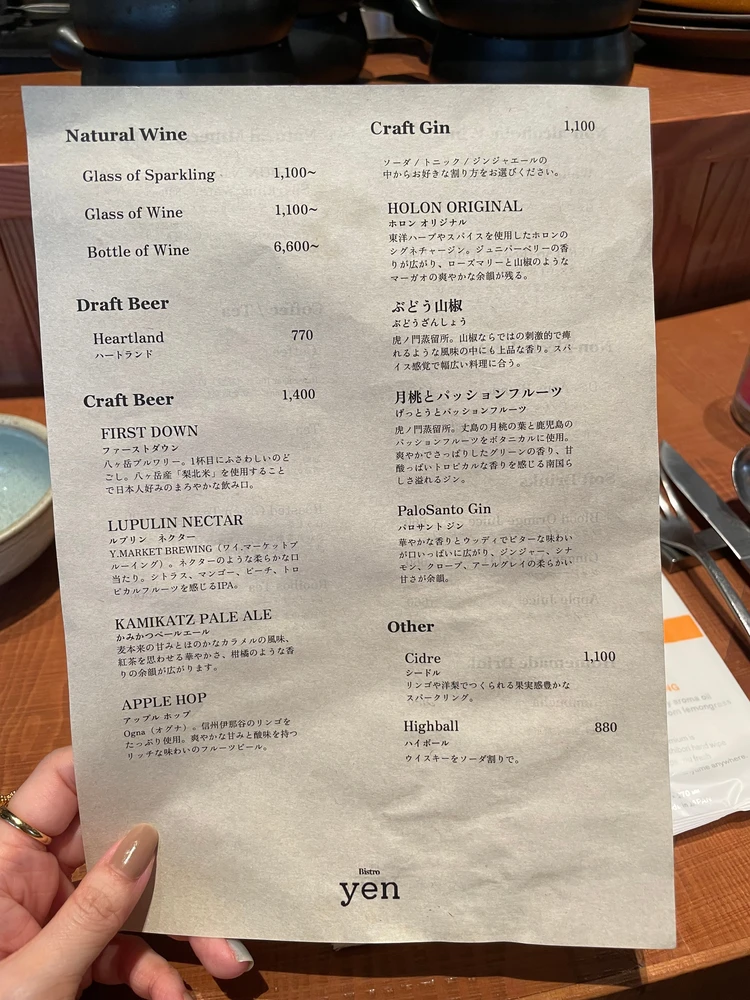 Natural Wine
Glass of Sparkling 1,100~
Glass of Wine 1,100~
Bottle of Wine 6,600~
Draft Beer
Heartland 770
ハートランド
Craft Beer 1,400
FIRST DOWN
ファーストダウン
八ヶ岳ブルワリー。1杯目にふさわしいのど
ごし。八ヶ岳産「梨北米」を使用すること
で日本人好みのまろやかな飲み口。
LUPULIN NECTAR
ルプリン ネクター
Y.MARKET BREWING（ワイ.マーケットブ
ルーイング）。ネクターのような柔らかな口
当たり。シトラス、マンゴー、ピーチ、トロ
ピカルフルーツを感じるIPA。
KAMIKATZ PALE ALE
かみかつペールエール
麦本来の甘みとほのかなカラメルの風味、
紅茶を思わせる華やかさ、柑橘のような香
りの余韻が広がります。
APPLE HOP
アップル ホップ
Ogna（オグナ）。信州伊那谷のリンゴを
たっぷり使用。爽やかな甘みと酸味を持つ
リッチな味わいのフルーツビール。
Craft Gin 1,100
ソーダ / トニック / ジンジャエールの
中からお好きな割り方をお選びください。
HOLON ORIGINAL
ホロン オリジナル
東洋ハーブやスパイスを使用したホロンの
シグネチャージン。ジュニパーベリーの香
りが広がり、ローズマリーと山椒のような
マーガオの爽やかな余韻が残る。
ぶどう山椒
ぶどうざんしょう
虎ノ門蒸留所。山椒ならではの刺激的で痺
れるような風味の中にも上品な香り。スパ
イス感覚で幅広い料理に合う。
月桃とパッションフルーツ
げっとうとパッションフルーツ
虎ノ門蒸留所。丈島の月桃の葉と鹿児島の
パッションフルーツをボタニカルに使用。
爽やかでさっぱりしたグリーンの香り、甘
酸っぱいトロピカルな香りを感じる南国ら
しさ溢れるジン。
PaloSanto Gin
パロサント ジン
華やかな香りとウッディでビターな味わい
が口いっぱいに広がり、ジンジャー、シナ
モン、クローブ、アールグレイの柔らかい
甘さが余韻。
Other
Cidre 1,100
シードル
リンゴや洋梨でつくられる果実感豊かな
スパークリング。
Highball 880
ハイボール
ウイスキーをソーダ割りで。
Bistro
yen